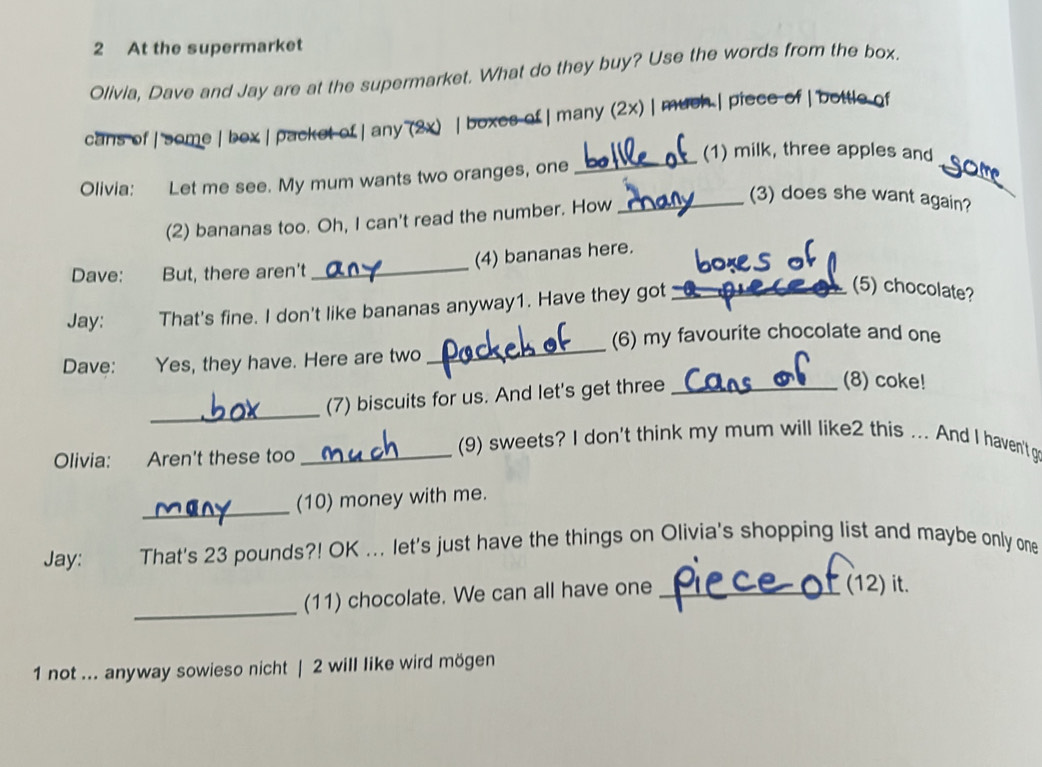 2 At the supermarket
Olivia, Dave and Jay are at the supermarket. What do they buy? Use the words from the box.
cans of | some | box | packet of | any (2x) | boxes of | many (2x) | much | piece of | bottle of
Olivia: Let me see. My mum wants two oranges, one bottle of (1) milk, three apples and some
(2) bananas too. Oh, I can't read the number. How many (3) does she want again?
Dave: But, there aren't any (4) bananas here.
boxes of
Jay: That's fine. I don't like bananas anyway1. Have they got a piece of (5) chocolate?
Dave: Yes, they have. Here are two packets of (6) my favourite chocolate and one
box (7) biscuits for us. And let's get three cans of (8) coke!
Olivia: Aren't these too much (9) sweets? I don't think my mum will like2 this ... And I haven't go
many (10) money with me.
Jay: That's 23 pounds?! OK ... let's just have the things on Olivia's shopping list and maybe only one
(11) chocolate. We can all have one piece of (12) it.
1 not ... anyway sowieso nicht | 2 will like wird mögen